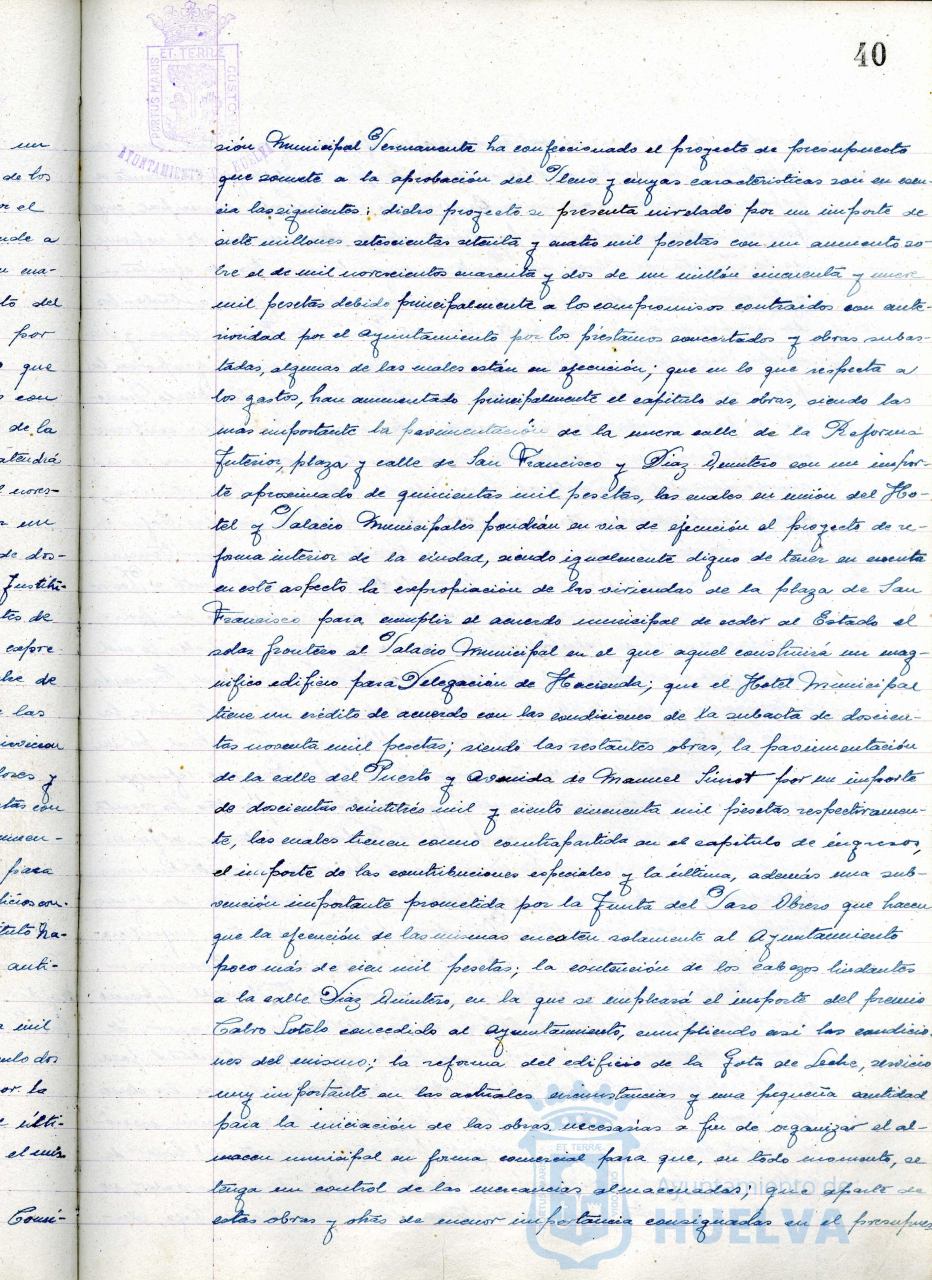 40
PORTUS MARIS ET TERRÆ CUSTO
AYUNTAMIENTO HUELVA
un
de los
el
nde a
cua-
to del
por
que
con
de la
atendrá
noves-
un
de dos-
Institu-
tes de
expre-
de
las
lores y
tas con
para
tuto Na-
anti-
mil
dos
or la
últi-
el mis
Consi-
sión Municipal Permanente ha confeccionado el proyecto de presupuesto
que somete a la aprobación del Pleno y cuyas características son en esen-
cia las siguientes: dicho proyecto se presenta nivelado por un importe de
siete millones setecientas setenta y cuatro mil pesetas con un aumento so-
bre el de mil novecientos cuarenta y dos de un millón cincuenta y nueve
mil pesetas debido principalmente a los compromisos contraidos con ante-
rioridad por el Ayuntamiento por los préstamos concertados y obras subas-
tadas, algunas de las cuales están en ejecución; que en lo que respecta a
los gastos, han aumentado principalmente el capítulo de obras, siendo las
mas importante la pavimentación de la nueva calle de la Reforma
Interior, plaza y calle de San Francisco y Diaz Quintero con un impor-
te aproximado de quinientas mil pesetas, las cuales en unión del Ho-
tel y Palacio Municipales pondrán en via de ejecución el proyecto de re-
forma interior de la ciudad, siendo igualmente digno de tener en cuenta
en este aspecto la expropiación de las viviendas de la plaza de San
Francisco para cumplir el acuerdo municipal de ceder al Estado el
solar frontero al Palacio Municipal en el que aquel construirá un mag-
nífico edificio para Delegación de Hacienda; que el Hotel Municipal
tiene un crédito de acuerdo con las condiciones de la subasta de doscien-
tas noventa mil pesetas; siendo las restantes obras, la pavimentación
de la calle del Puerto y Avenida de Manuel Siurot por un importe
de doscientas veintitrés mil y ciento cincuenta mil pesetas respectivamen-
te, las cuales tienen como contrapartida en el capítulo de ingresos,
el importe de las contribuciones especiales y la última, además una sub-
vención importante prometida por la Junta del Paro Obrero que hacen
que la ejecución de las mismas cuesten solamente al Ayuntamiento
poco más de cien mil pesetas; la contención de los cabezos lindantes
a la calle Diaz Quintero, en la que se empleará el importe del premio
Calvo Sotelo concedido al Ayuntamiento, cumpliendo así las condicio-
nes del mismo; la reforma del edificio de la Gota de Leche, servicio
muy importante en las actuales circunstancias y una pequeña cantidad
para la iniciación de las obras necesarias a fin de organizar el al-
macen municipal en forma comercial para que, en todo momento, se
tenga un control de las mercancías almacenadas; que aparte de
estas obras y otras de menor importancia consignadas en el presupues
Ayuntamiento de
HUELVA